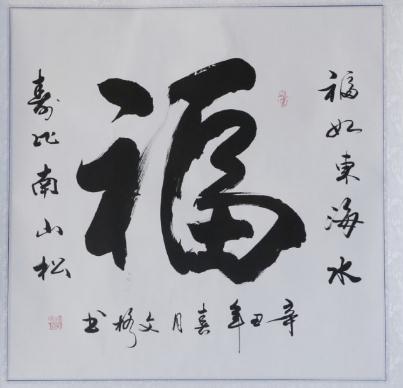 福
福如東海水
寿比南山松
辛丑年喜月文格书